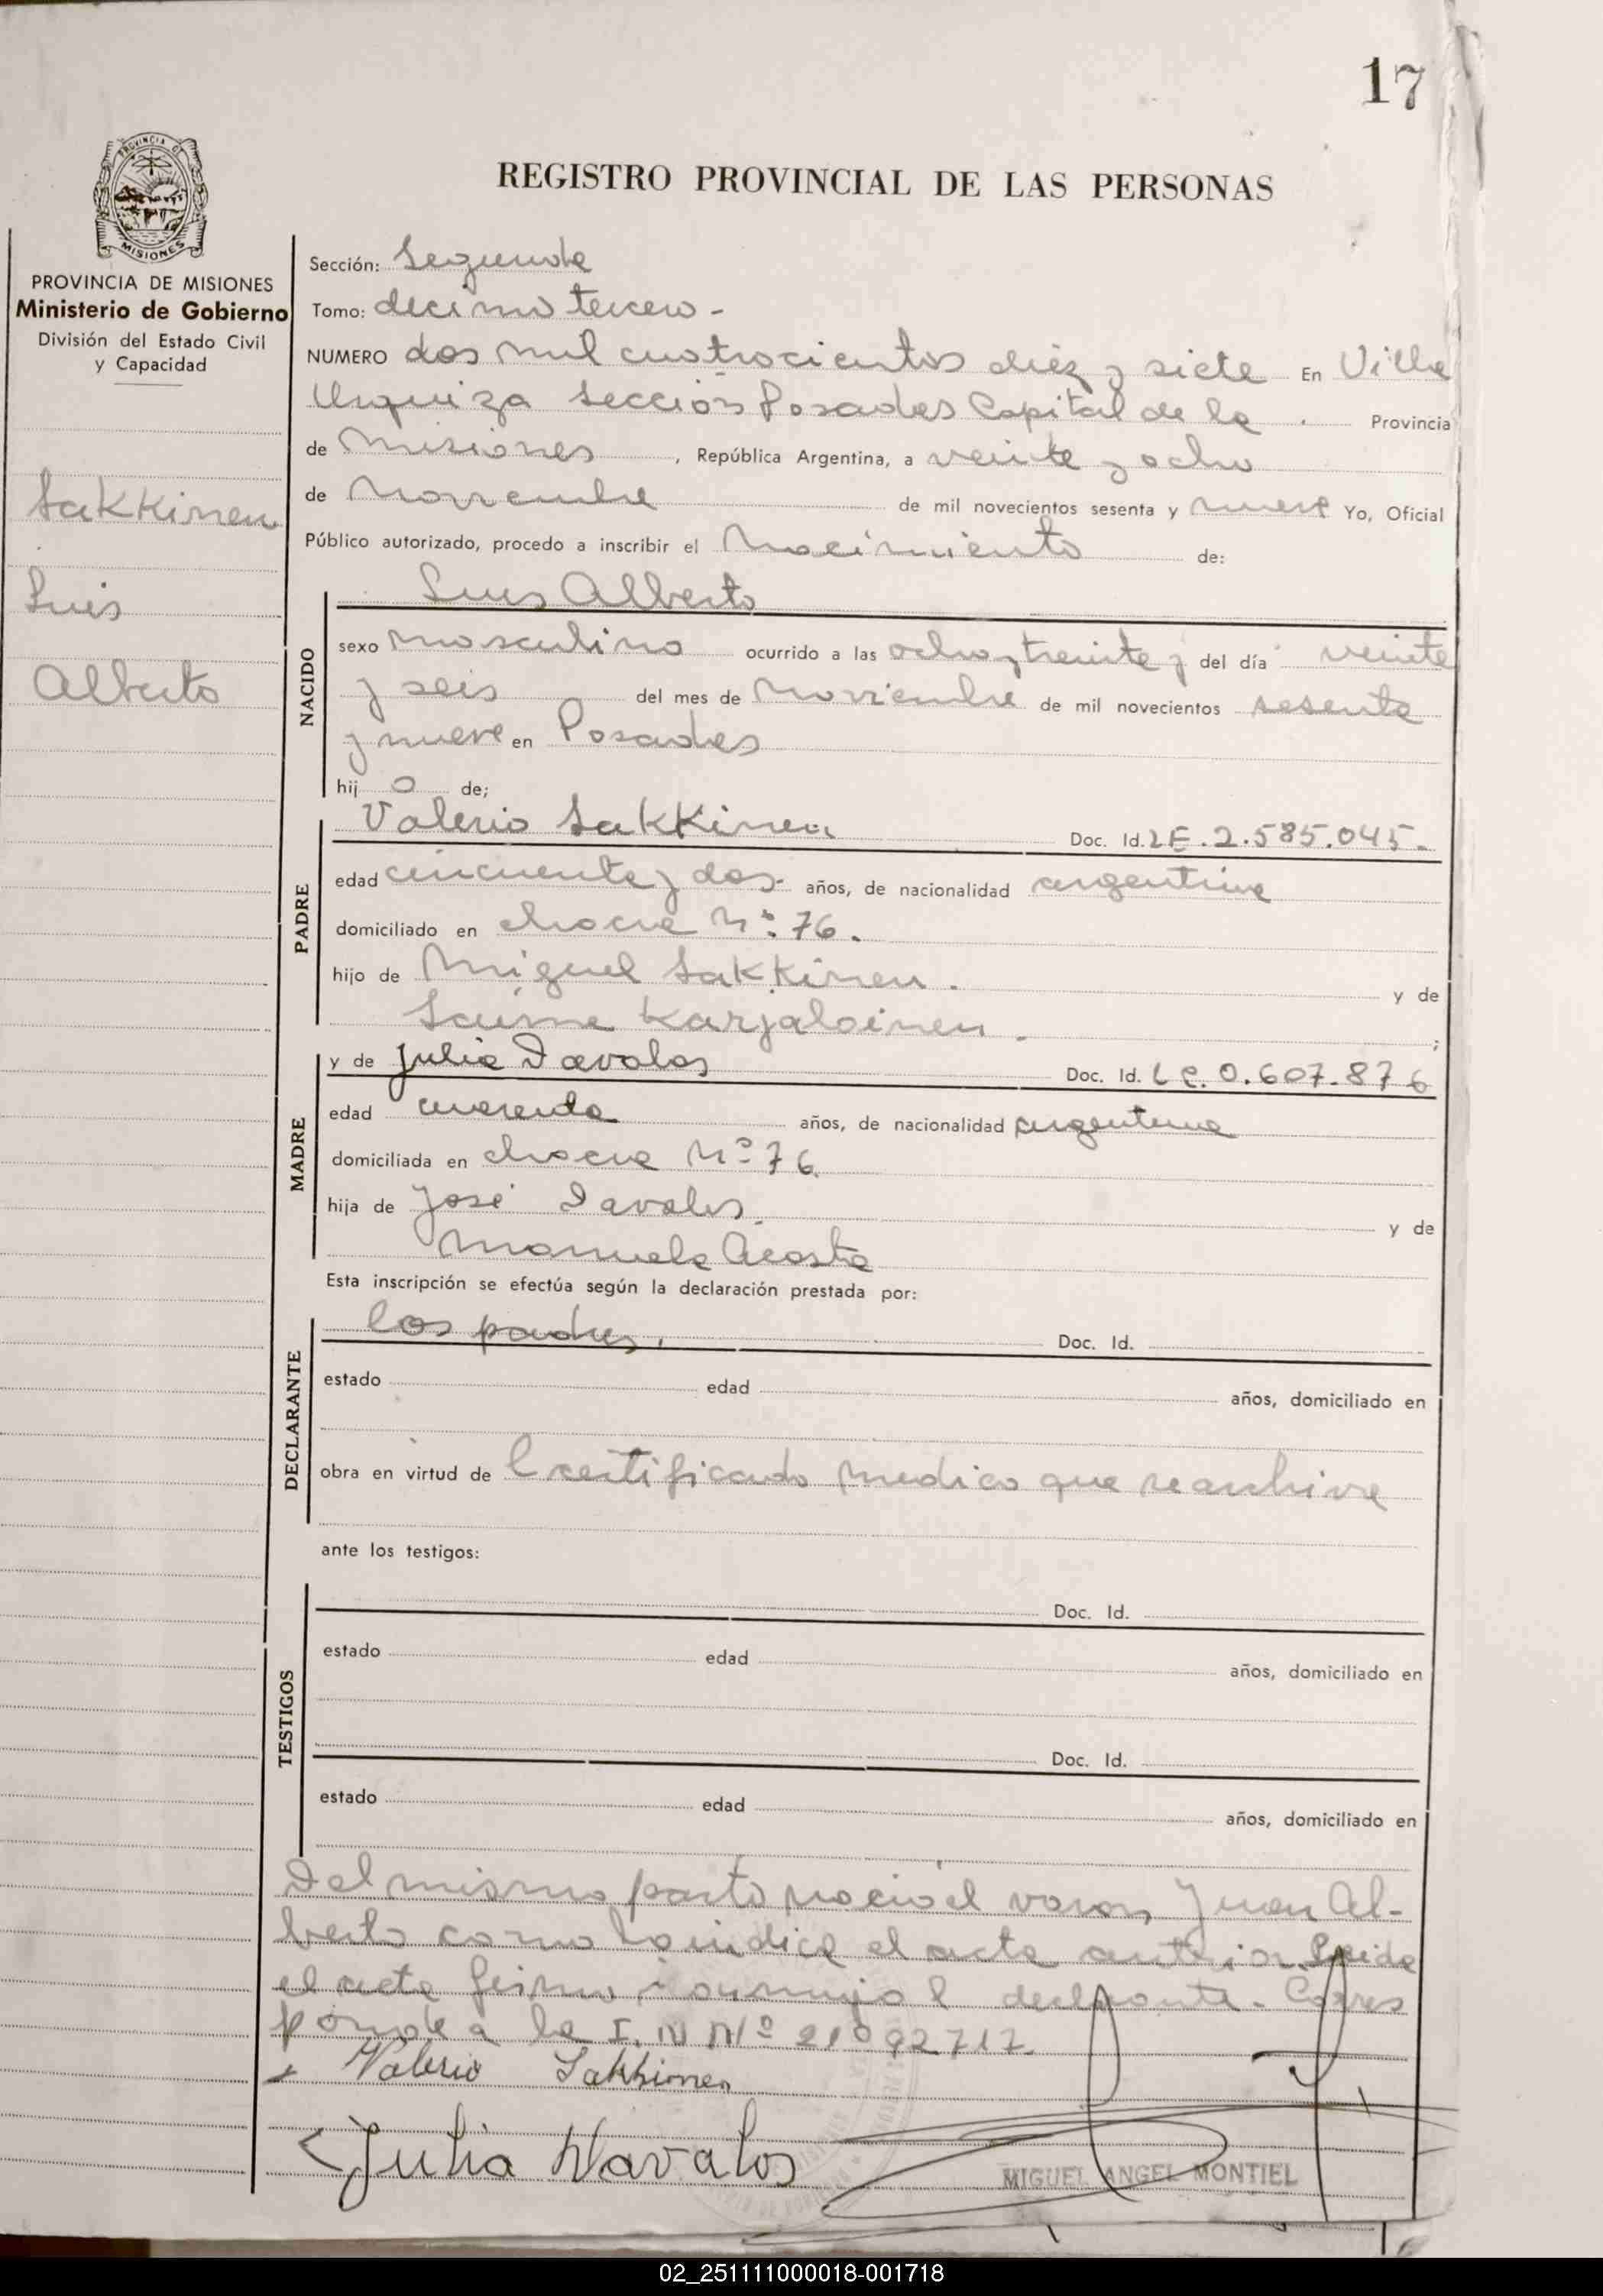 17
REGISTRO PROVINCIAL DE LAS PERSONAS
PROVINCIA DE MISIONES
Ministerio de Gobierno
División del Estado Civil
y Capacidad
Sakkinen
Luis
Alberto
Sección: Segunda
Tomo: decimo tercero -
NUMERO dos mil cuatrocientos diez y siete En Villa
Urquiza Sección Posadas Capital de la . Provincia
de Misiones , República Argentina, a veinte y ocho
de Noviembre de mil novecientos sesenta y nueve Yo, Oficial
Público autorizado, procedo a inscribir el Nacimiento de:
Luis Alberto
NACIDO
sexo masculino ocurrido a las ocho y treinta y del día veinte
y seis del mes de Noviembre de mil novecientos sesenta
y nueve en Posadas
hij o de;
Valerio Sakkinen Doc. Id. LE. 2.585.045-
PADRE
edad cincuenta y dos- años, de nacionalidad argentina
domiciliado en chacra Nº: 76.
hijo de Miguel Sakkinen. y de
Saime Karjaloinen - ;
y de Julia Davalos Doc. Id. LC. 0.607.876
MADRE
edad cuarenta años, de nacionalidad argentina
domiciliada en chacra Nº 76
hija de José Davalos. y de
Manuela Acosta
Esta inscripción se efectúa según la declaración prestada por:
los padres. Doc. Id.
DECLARANTE
estado edad años, domiciliado en
obra en virtud de Certificado medico que se archiva
ante los testigos:
Doc. Id.
TESTIGOS
estado edad años, domiciliado en
Doc. Id.
estado edad años, domiciliado en
Del mismo parto nacio el varon Juan Al-
berto como lo indica el acta anterior. Leida
el acta firma conmigo l declarante. Corres
ponde a la I. N Nº 21092717.
Valerio Sakkinen
Julia Davalos
MIGUEL ANGEL MONTIEL
02_251111000018-001718